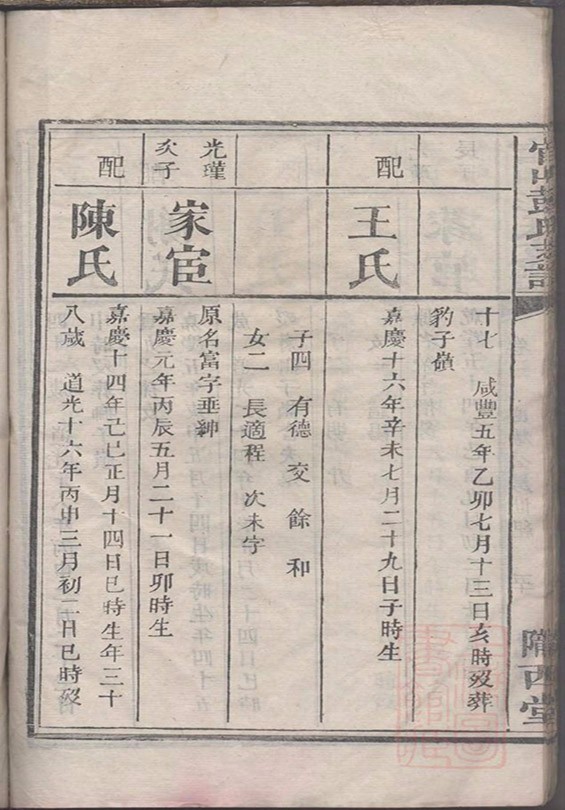 彭氏
隴西堂
十七 咸豐五年乙卯七月十三日亥時歿葬
豹子嶺
配
王氏
嘉慶十六年辛未七月二十九日子時生
子四 有德 交 餘 和
女二 長適程 次未字
光瑾
次子
家宦
原名富字垂紳
嘉慶元年丙辰五月二十一日卯時生
配
陳氏
嘉慶十四年己巳正月十四日巳時生年三十
八歲 道光十六年丙申三月初二日巳時歿